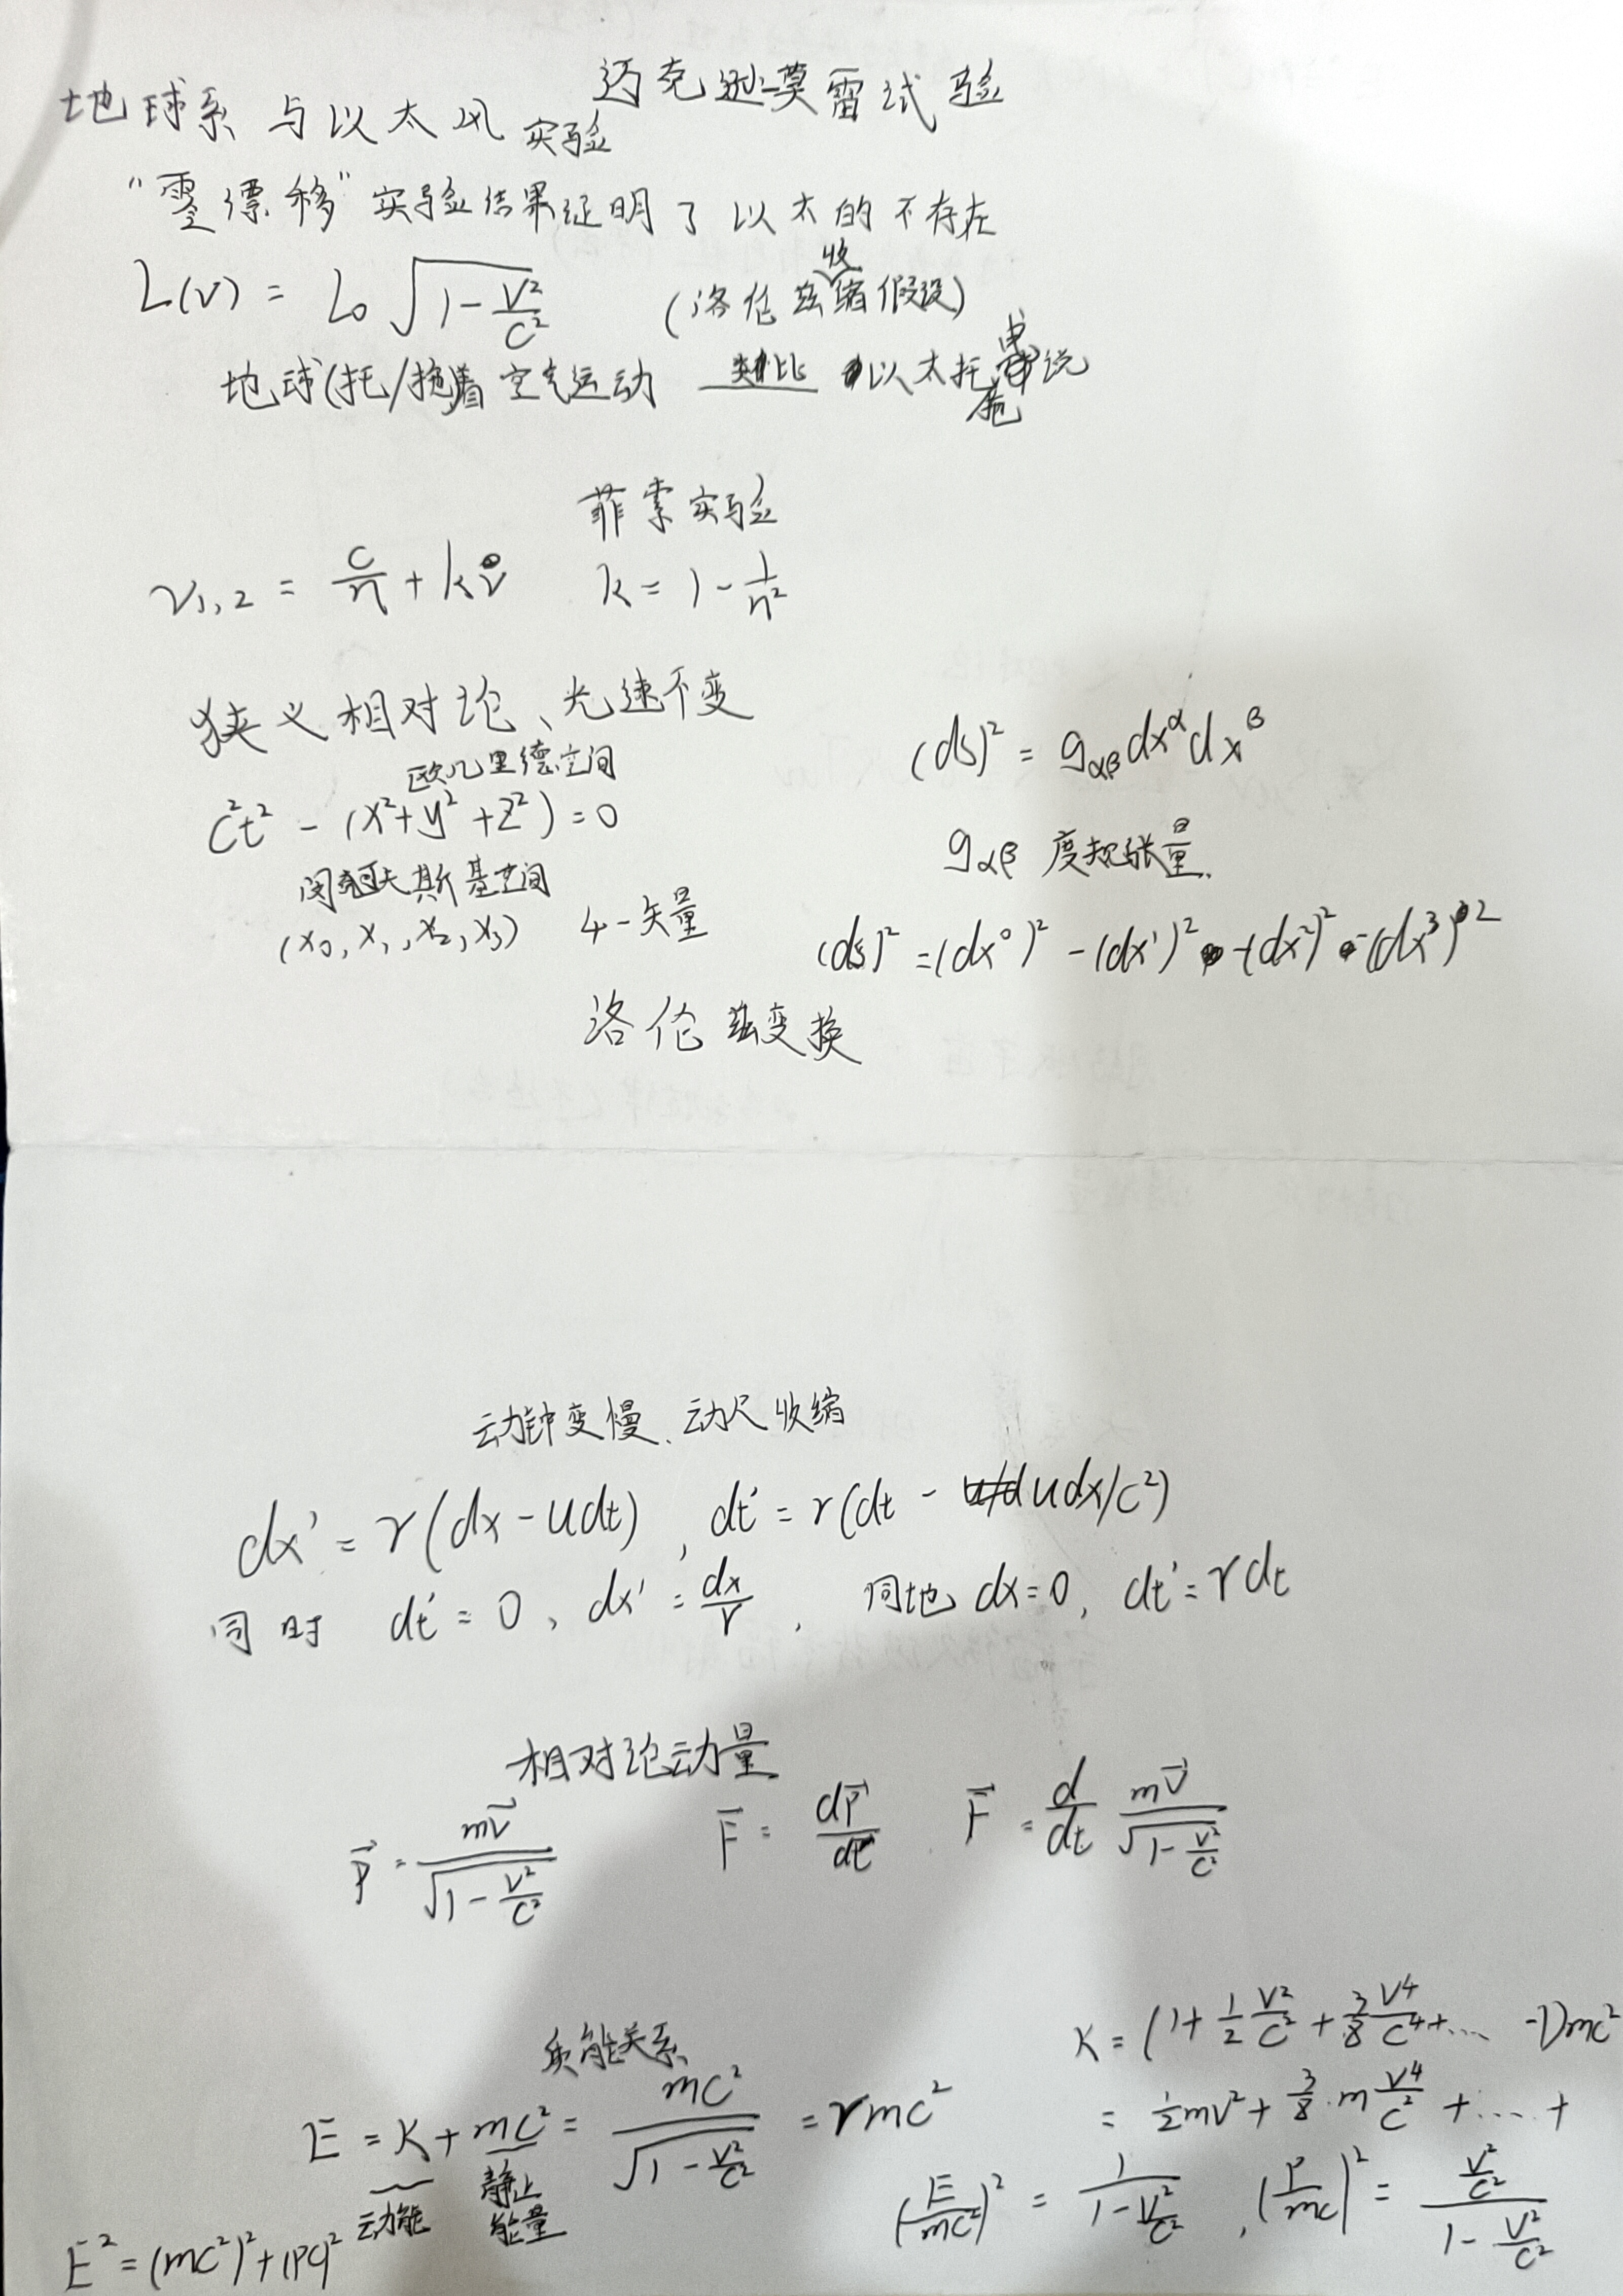 迈克逊-莫雷试验
地球系与以太风实验
"零漂移"实验结果证明了以太的不存在
L(v) = L₀√(1-v²/c²) (洛伦兹收缩假设)
地球(托/拖)着空气运动 类比 以太托曳说
拖
菲索实验
v₁,₂ = c/n + kv k = 1 - 1/n²
狭义相对论、光速不变
欧几里德空间
c²t² - (x²+y²+z²) = 0
(ds)² = g_αβ dx^α dx^β
g_αβ 度规张量.
闵可夫斯基空间
(x₀, x₁, x₂, x₃) 4-矢量
(ds)² = (dx⁰)² - (dx¹)² - (dx²)² - (dx³)²
洛伦兹变换
动钟变慢、动尺收缩
dx' = γ(dx - udt), dt' = γ(dt - udx/c²)
同时 dt' = 0, dx' = dx/γ, 同地 dx = 0, dt' = γdt
相对论动量
p⃗ = mv⃗/√(1-v²/c²) F⃗ = dp⃗/dt F⃗ = d/dt mv⃗/√(1-v²/c²)
质能关系
K = (1 + 1/2 v²/c² + 3/8 v⁴/c⁴ + … -1)mc²
E = K + mc² = mc²/√(1-v²/c²) = γmc²
= 1/2mv² + 3/8·m v⁴/c² + … +
动能 静止能量
(E/mc²)² = 1/(1-v²/c²), (p/mc)² = (v²/c²)/(1-v²/c²)
E² = (mc²)² + (pc)²